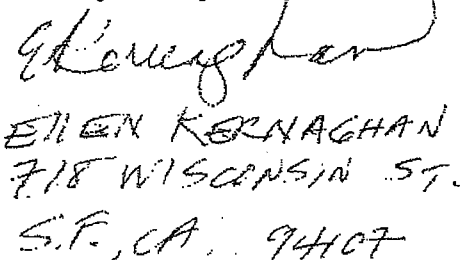 EKernaghan
EllEN KERNAGHAN
718 WISCONSIN ST.
S.F., CA. 94107